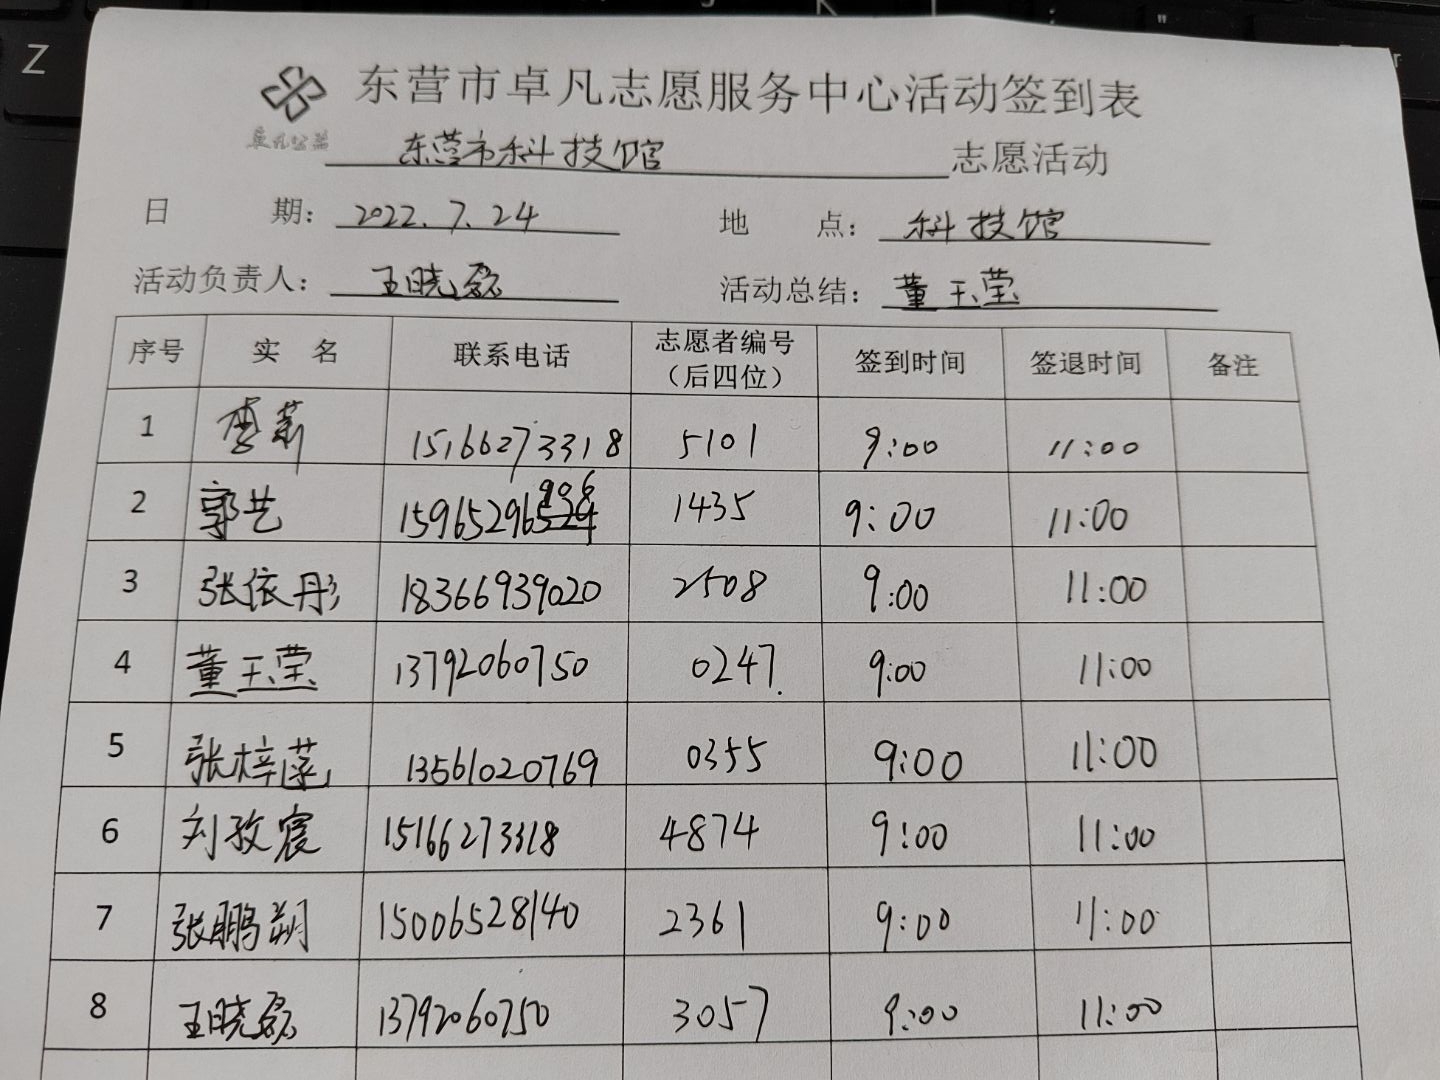 东营市卓凡志愿服务中心活动签到表
卓凡公益
东营市科技馆 志愿活动
日 期： 2022.7.24 地 点： 科技馆
活动负责人： 王晓磊 活动总结： 董玉莹
序号 实 名 联系电话 志愿者编号（后四位） 签到时间 签退时间 备注
1 李莉 15166273318 5101 9:00 11:00
2 郭艺 15965296906 1435 9:00 11:00
3 张依彤 18366939020 2508 9:00 11:00
4 董玉莹 13792060750 0247. 9:00 11:00
5 张梓菡 13561020769 0355 9:00 11:00
6 刘孜宸 15166273318 4874 9:00 11:00
7 张鹏朔 15006528140 2361 9:00 11:00
8 王晓磊 13792060750 3057 9:00 11:00
Z